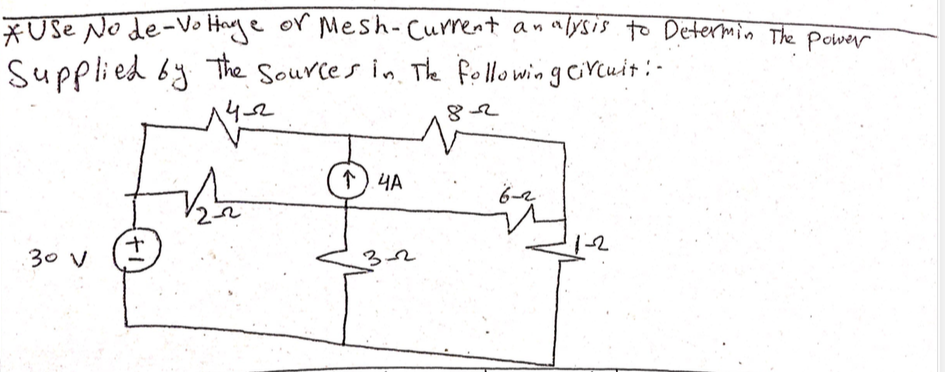 *USe No de-Voltage or Mesh-Current analysis to Determin The Power
Supplied by The Sources in The following circuit:-
4Ω
8Ω
↑ 4A
6Ω
2Ω
30 V
+
-
3Ω
1Ω